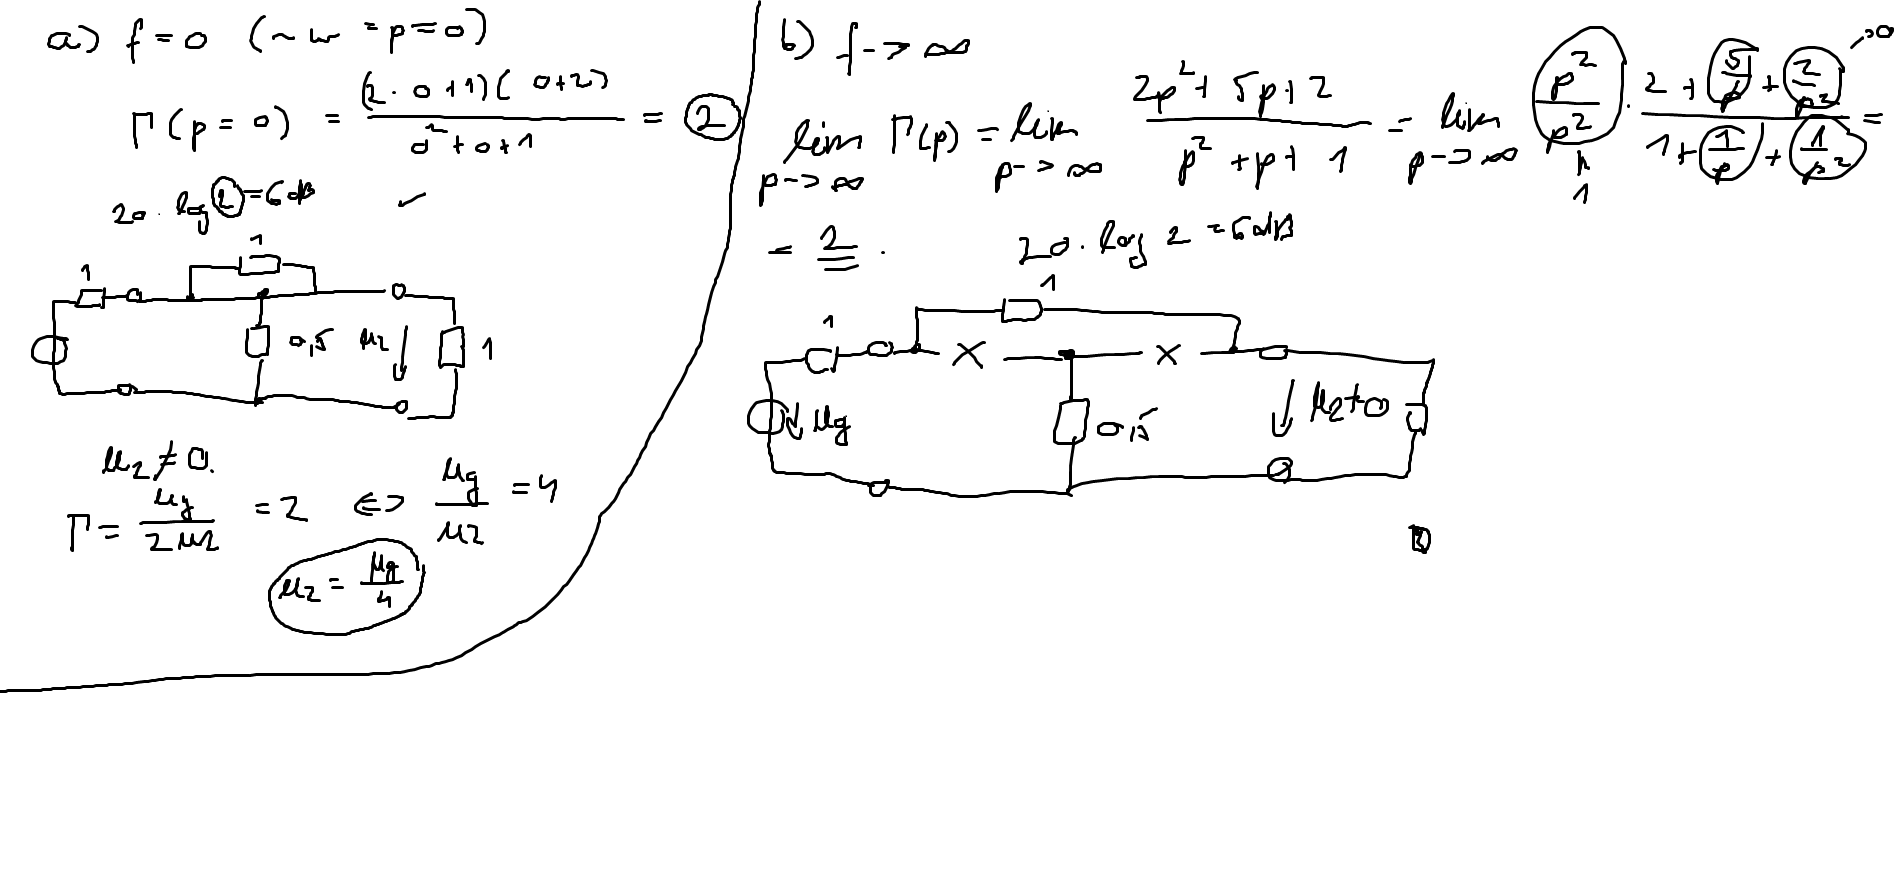 a) f = 0 (~ w = p = 0)
Γ(p = 0) = (2·0+1)(0+2) / 0²+0+1 = 2
20 · log 2 = 6 dB ✓
1
1
0,5 u2 1
u2 ≠ 0.
Γ = ug / 2u2 = 2 <=> ug / u2 = 4
u2 = ug / 4
b) f -> ∞
lim p->∞ Γ(p) = lim p->∞ 2p²+5p+2 / p²+p+1 = lim p->∞ p²/p² · 2 + 5/p + 2/p² / 1 + 1/p + 1/p² =
->0
1
= 2. 20 · log 2 = 6 dB
1
1
ug 0,5 u2 ≠ 0